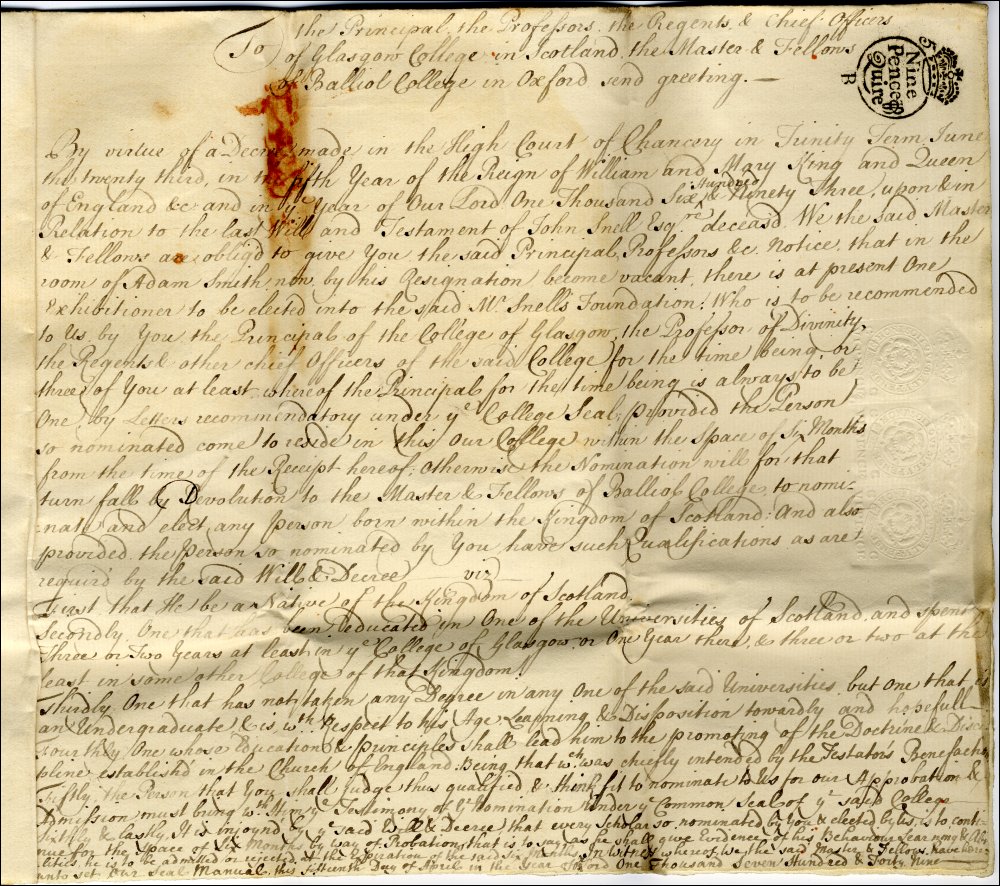 To the Principal, the Professors, the Regents, & Chief Officers
of Glasgow College in Scotland, the Master & Fellows
of Balliol College in Oxford send greeting. —
Nine
Pence p
Quire
B
By virtue of a Decree made in the High Court of Chancery in Trinity Term, June
the twenty third, in the fifth Year of the Reign of William and Mary King and Queen
of England &c and in ye Year of Our Lord One Thousand Six Hundred & Ninety Three, upon & in
Relation to the last Will and Testament of John Snell Esqre deceas'd, We the said Master
& Fellows are oblig'd to give You the said Principal, Professors &c. Notice, that in the
room of Adam Smith now by his Resignation become vacant, there is at present One
Exhibitioner to be elected into the said Mr Snell's Foundation: Who is to be recommended
to Us by You the Principal of the College of Glasgow, the Professor of Divinity,
the Regents & other chief Officers of the said College for the time being, or
three of You at least, whereof the Principal for the time being is always to be
One, by Letters recommendatory under ye College Seal; provided the Person
so nominated come to reside in this our College within the Space of Six Months
from the time of the Receipt hereof; otherwise the Nomination will for that
turn fall by Devolution to the Master & Fellows of Balliol College, to nomi-
-nate and elect any person born within the Kingdom of Scotland: And also
provided the person so nominated by You have such Qualifications as are
requir'd by the said Will & Decree viz
First that He be a Native of the Kingdom of Scotland.
Secondly, One that has been educated in One of the Universities of Scotland, and spent
Three or Two Years at least in ye College of Glasgow, or One Year there, & three or two at the
least in some other College of that Kingdom.
Thirdly, One that has not taken any Degree in any One of the said Universities, but one that is
an Undergraduate, & is wth Respect to his Age, Learning & Disposition towardly and hopefull
Fourthly One whose Education & principles shall lead him to the promoting of the Doctrine & Disci
pline establish'd in the Church of England. Being that wch was chiefly intended by the Testator's Benefaction
Fifthly, the Person that You shall Judge thus qualified, & think fit to nominate to Us for our Approbation &
Admission must bring wth Him ye Testimony of Yr Nomination under ye Common Seal of ye said College
Sixthly & lastly, It is injoynd by ye said Will & Decree that every Scholar so nominated by You & elected by Us is to conti-
nue for the Space of Six Months by way of Probation, that is to say, as he shall give Evidence of his Behaviour, Learning &
he is to be admitted or rejected at the Expiration of the said Six Months. In Witness whereof we the said Master & Fellows have here
unto set our Seal Manual, this fifteenth Day of April in the Year One Thousand Seven Hundred & Forty Nine —